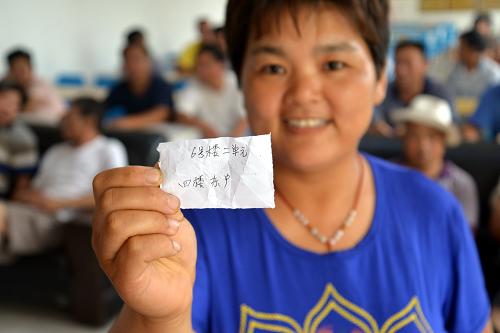 6号楼二单元
四楼东户